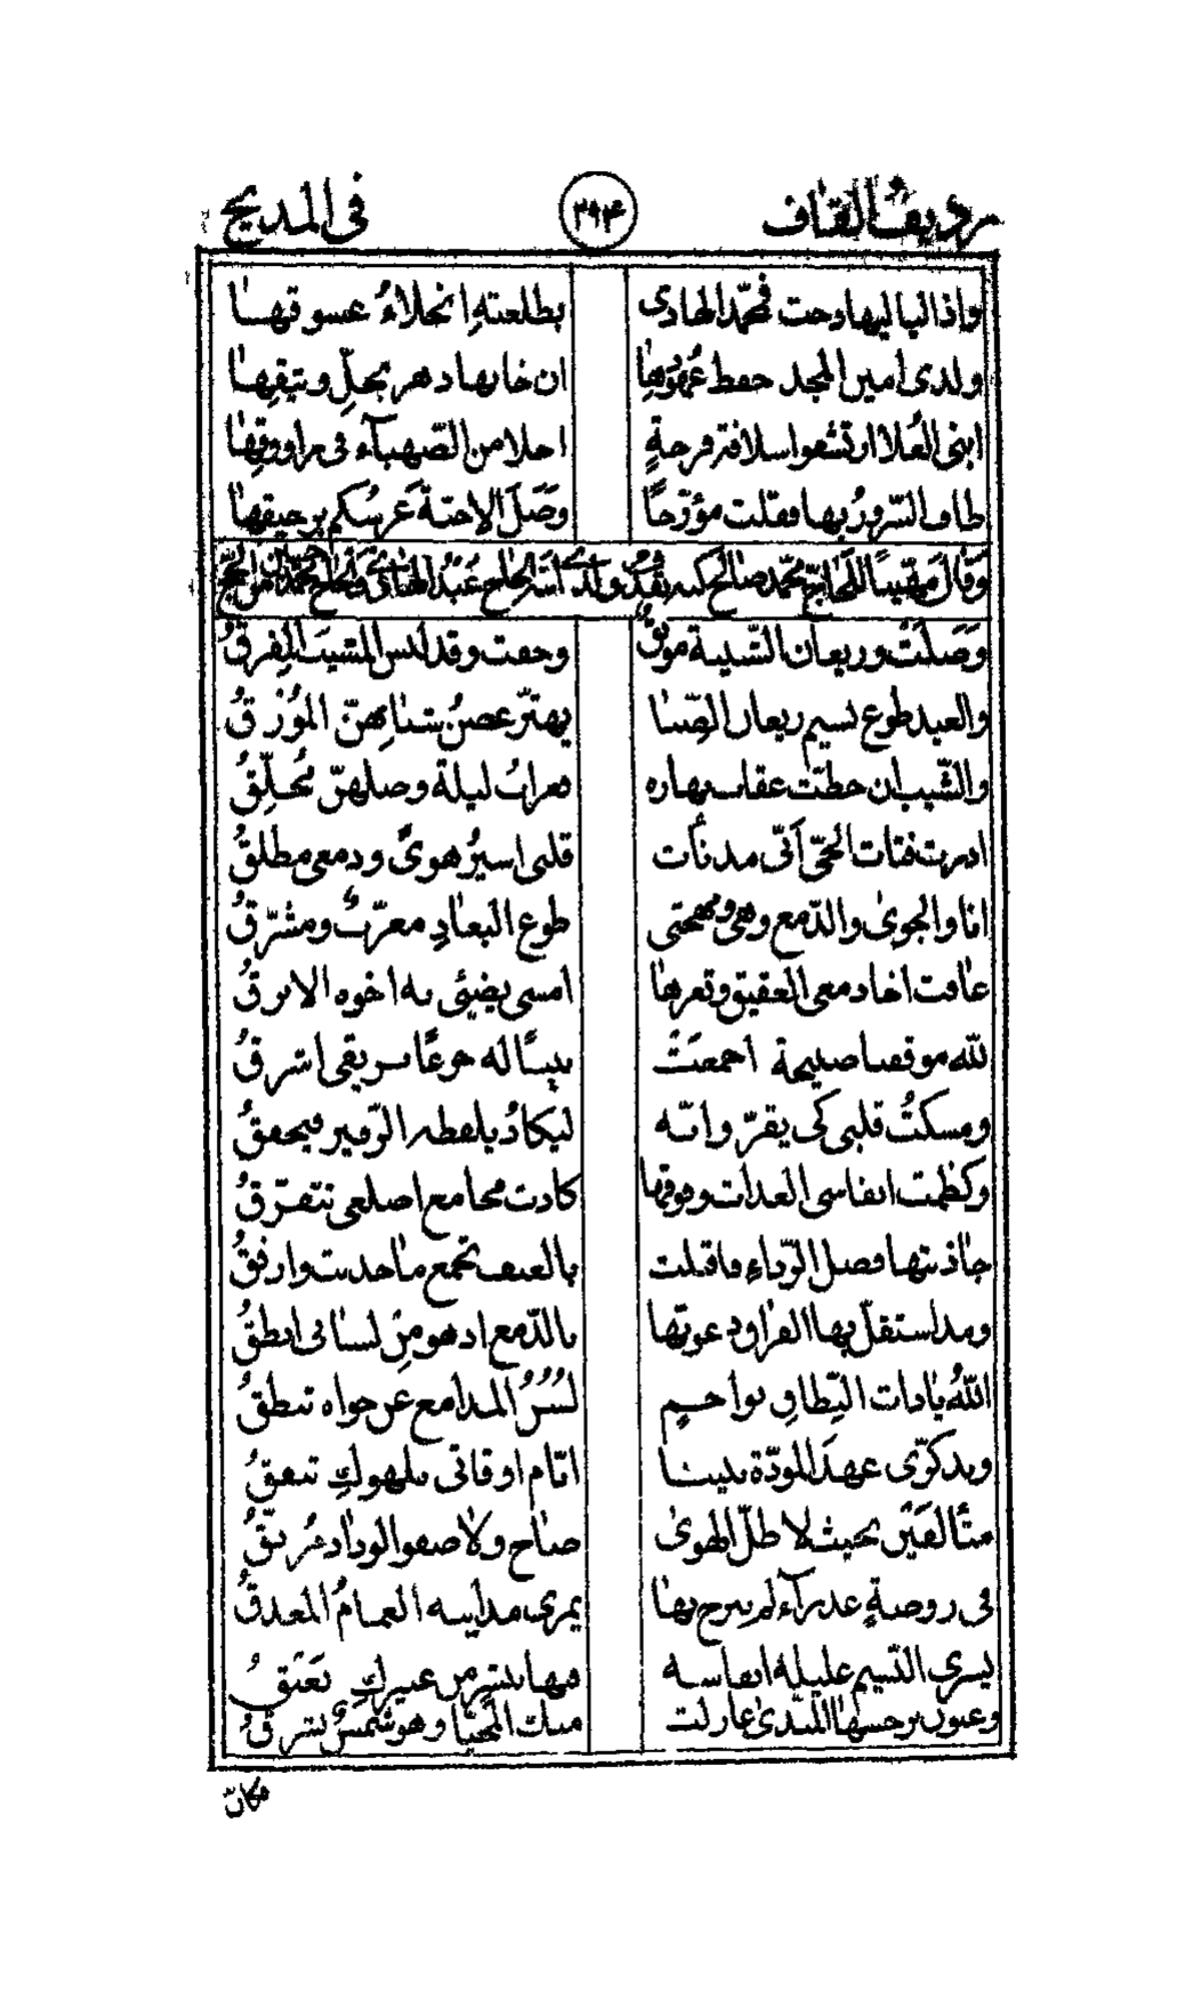 رديف القاف ٢٩٤ في المديح
واذا لياليها دجت فمحمد الهادى بطلعتهِ انجلاءُ غسوقهـا
ولدى امين المجد حفظ عُهُوْدِهٰا ان خانها دهر بجلّ وثيقِهـا
ابنى العُلا ارتشفوا سلافة فرحةٍ احلا من الصّهبآء فى راووقِهٰا
طاف السّرورُ بها فقلت مؤرّخًا وصَلَ الاحبّة عَرسُكم برحيقهٰا
وَقٰالَ مهنّيًا الحٰاجّ محمّد صٰالح كبه بقدُوم ولديه الحٰاج عَبْدُ الهٰادى وَ الحٰاج محمّد امين من الحجّ
وَصَلَتْ وريعان الشّبيبة مونقُ وجفت وقد لبس المشيبَ المفرقُ
والغيد طوع نسيم ريعان الصّبٰا يهتزّ غصنُ شبٰابِهنّ المُوْرقُ
والشّيب ان حطّت عقاب نهاره فغرابُ ليلة وصلهنّ مُحلّقُ
ادرت فتات الحىّ اَنّى مذ نأت قلبى اسيرُ هوىً ودمعى مطلقُ
انا والجوىٰ والدّمع وهى ومهجتى طوع البعٰادِ مغرّبٌ ومشرّقُ
عافت اخا دمعى العقيق وثغرهٰا امسى يضيئى به اخوه الابرقُ
لله موقفنا صبيحة اجمعَتْ بينًا له جزعًا بريقى اشرقُ
ومسكتُ قلبى كى يقرّ وانّه ليكادُ يلفظه الزّفير فيخفقُ
وكظمت انفاسى الغدات وفوقها كادت مجامع اضلعى تتفرّقُ
جاذبتها فضل الرّداءِ فاقبلت بالعنف تجمع مٰا جذبت وارفقُ
ومذ استقلّ بها الفراق دعوتها بالدّمع اذ هو مِن لسٰانى انطقُ
اللهُ يا ذات النّطاق بواجـمٍ لسُنُ المدامع عن جواه تنطقُ
وتذكّرى عهدَ المودّة بيننـا ايّام اوقاتى بلهوكِ تنفقُ
متألفَيْن بحيث لا ظلّ الهوىٰ ضٰاحٍ ولا صفو الوداد مُرنّقُ
فى روضةٍ عذرآء لم يبرح بهٰا يمرى مدانبه الغمامُ المغدقُ
يسرى النّسيم عليلة انفاسـه فيها بنشر من عبيركِ يعبقُ
وعيون نرجسها النّدىٰ غازلت منك المحيّا وهو شمسٌ تشرقُ
فكانّ